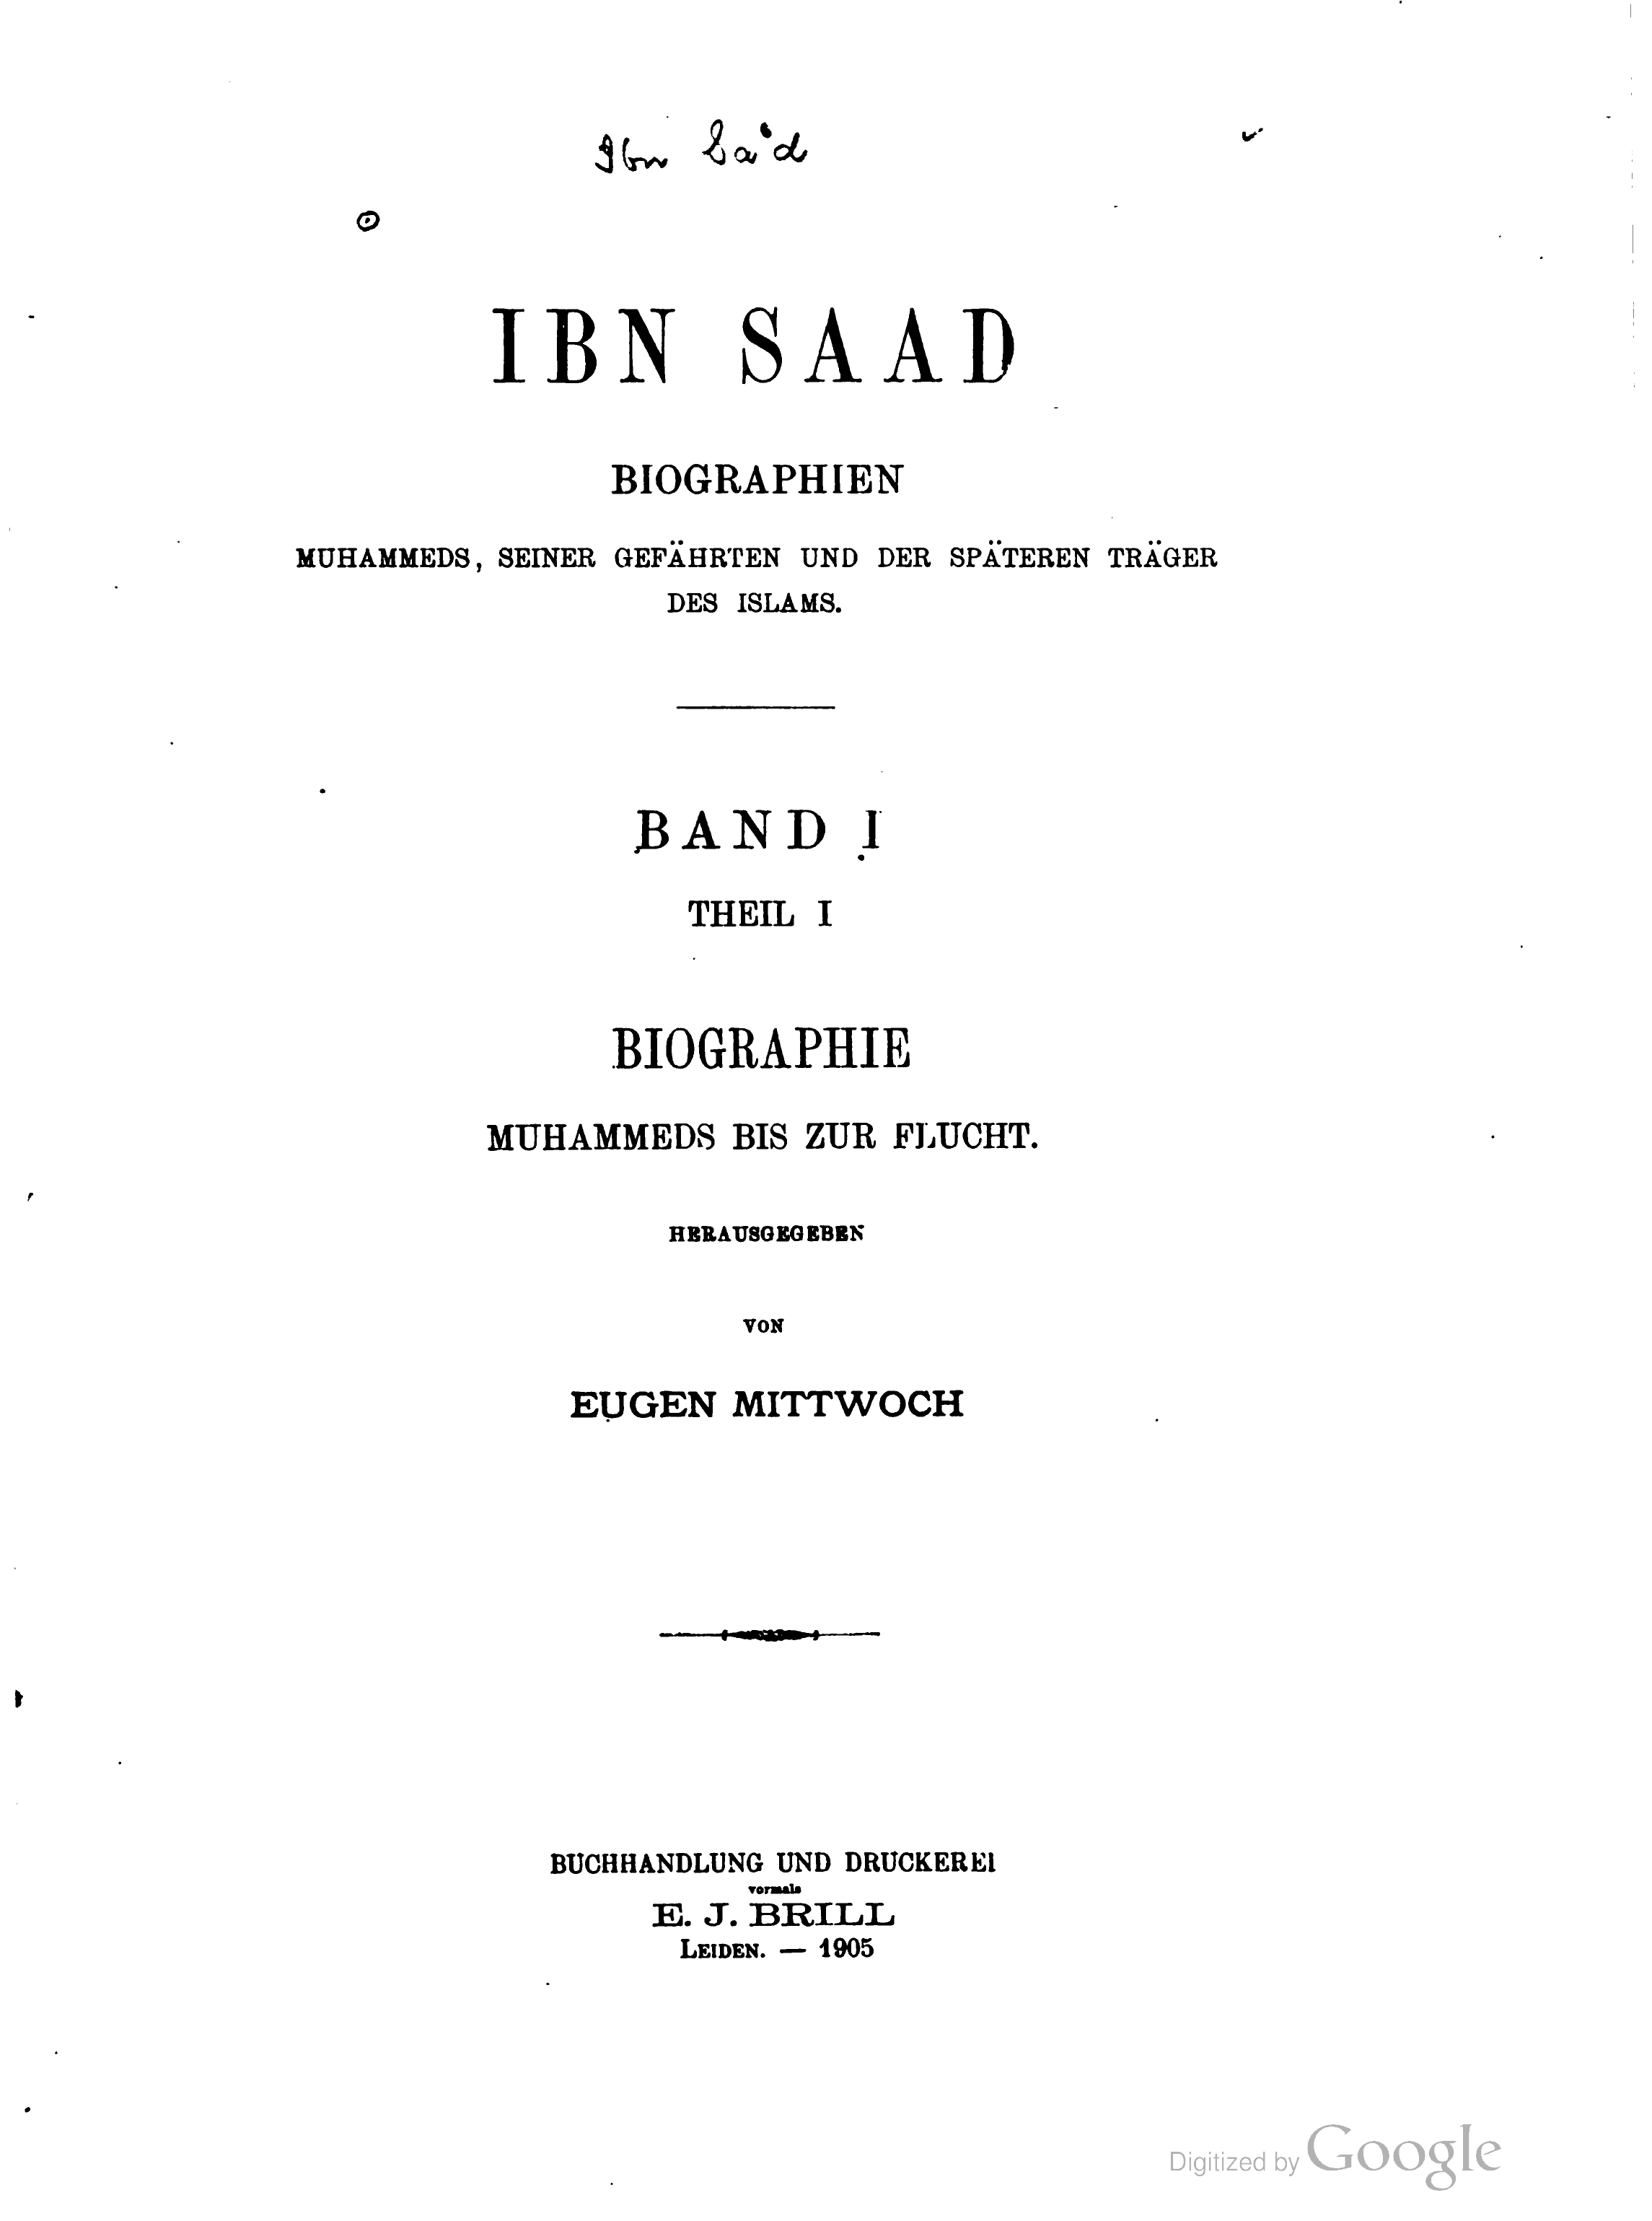 Ibn Sa'd
IBN SAAD
BIOGRAPHIEN
MUHAMMEDS, SEINER GEFÄHRTEN UND DER SPÄTEREN TRÄGER
DES ISLAMS.
BAND I
THEIL I
BIOGRAPHIE
MUHAMMEDS BIS ZUR FLUCHT.
HERAUSGEGEBEN
VON
EUGEN MITTWOCH
BUCHHANDLUNG UND DRUCKEREI
vormals
E. J. BRILL
LEIDEN. — 1905
Digitized by Google